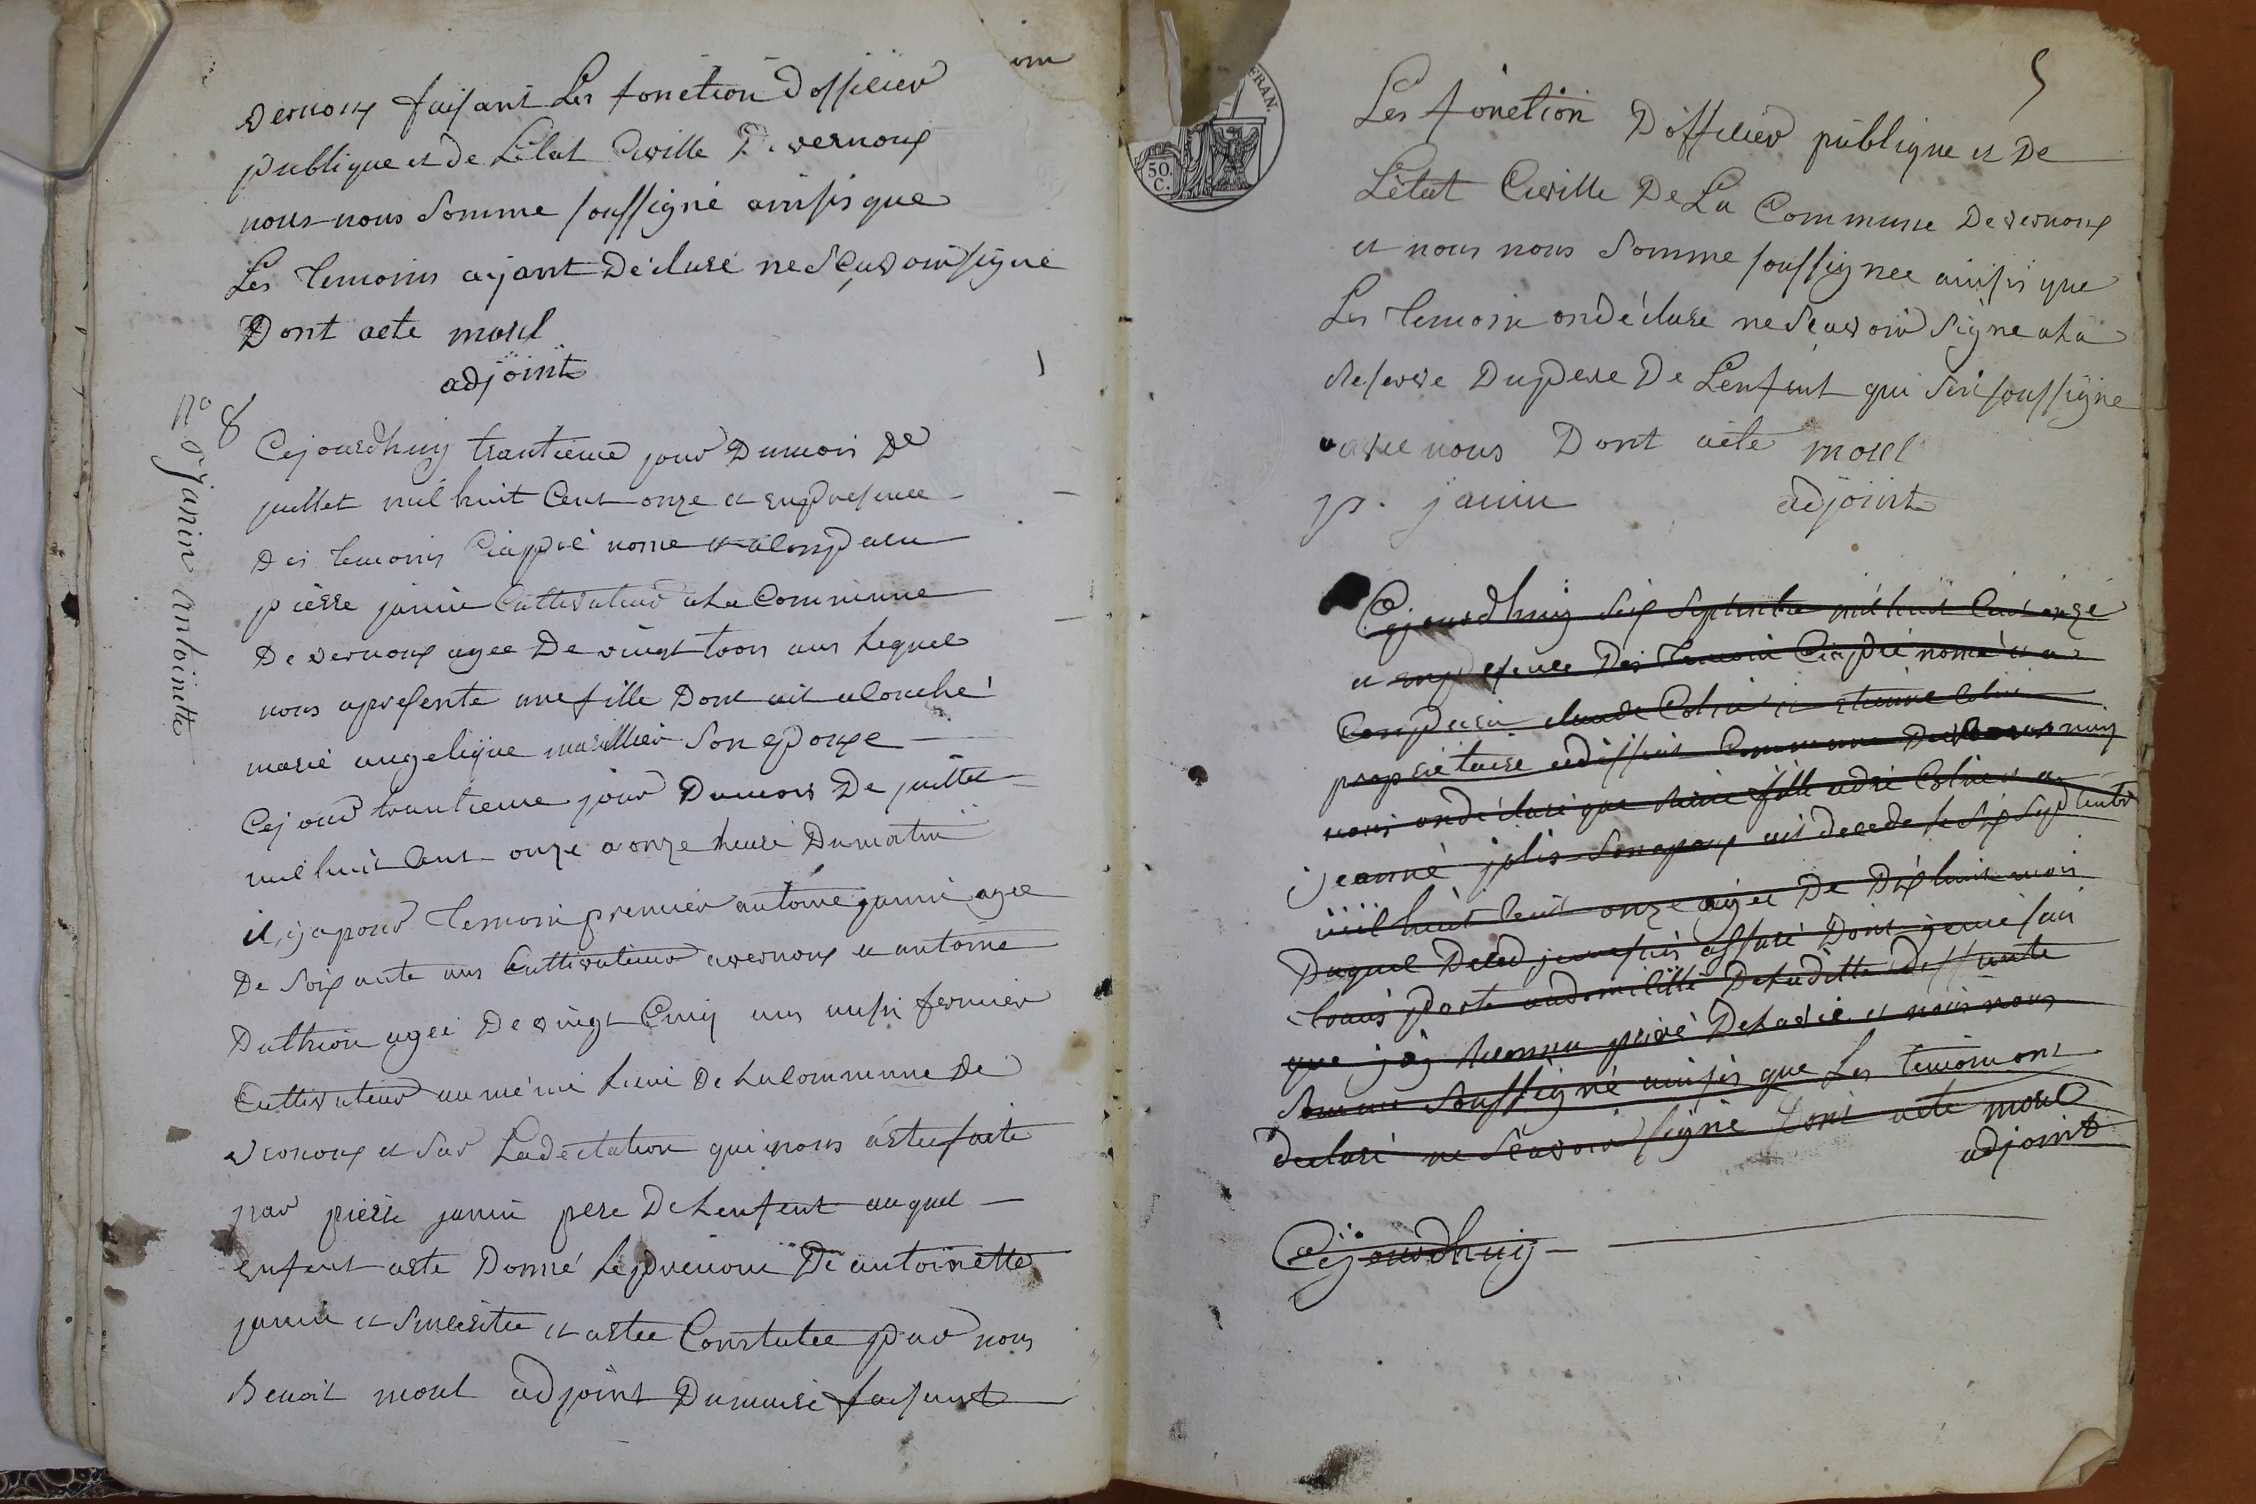 vernoux faisant Les fonction Dofficier
publique et de Letat Civille De vernoux
nous nous Somme soussigné ainsis que
Les temoins ayant Déclaré ne Scavoir signé
Dont acte morel
adjoint
n° 8 janin antoinette
8
Cejourdhuy trantieme jour Dumois De
juillet mil huit Cent onze et enpresence
Des temoins Ciappré nomé et alonparu
pierre janin Cultivateur a La Commune
De vernoux agee De vingt trois ans Lequel
nous apresente une fille Dont ait alouché
marie angelique marillier Son epouxe
Cejour trantieme jour Dumois De juillet
mil huit Cent onze a onze heure Dumatin
il, y a pour temoin premier antoine janin agee
De Soixante ans Cultivateur a vernoux et antoine
Duthion agée De vingt Cinq ans ausi fermier
Cultivateur au même Lieu De La Commune De
vernoux et Sur Ladectation qui nous a etee faite
par pierre janin pere De Lenfent auquel
enfent aete Donné Le prenom De antoinette
janin et Sinceritee et aetee Constatee par nous
Benoit morel adjoint Dumaire faisant
5
FRAN.
50.
C.
Les fonction Dofficier publique et De
Létat Civille De La Commune De vernoux
et nous nous Somme soussignee ainsis que
Les temoin on déclare ne Scavoir Signe a La
reserve Dupere De Lenfent qui Sai soussigne
avec nous Dont acte morel
p. janin adjoint
Cejourdhuy Six Septembre mil huit Cent onze
et enpresence Des temoin Ciapré nomé et a
Conparu claude Colin et etienne Colin
propriétaire Commune De
nous on déclaré que fille Colin
jeanne jolis Son epoux ait decede le Six Septembre
mil huit Cent onze agee De Dix huit mois
Duquel Deced je me suis assuré Dont je me sui
trans porte audomicille De La ditte Deffunte
que jay reconnu privé De La vie et nous nous
Somme Soussigné ainsis que Les temoin ont
declaré ne Scavoir signé Dont acte morel
adjoint
Cejourdhuy